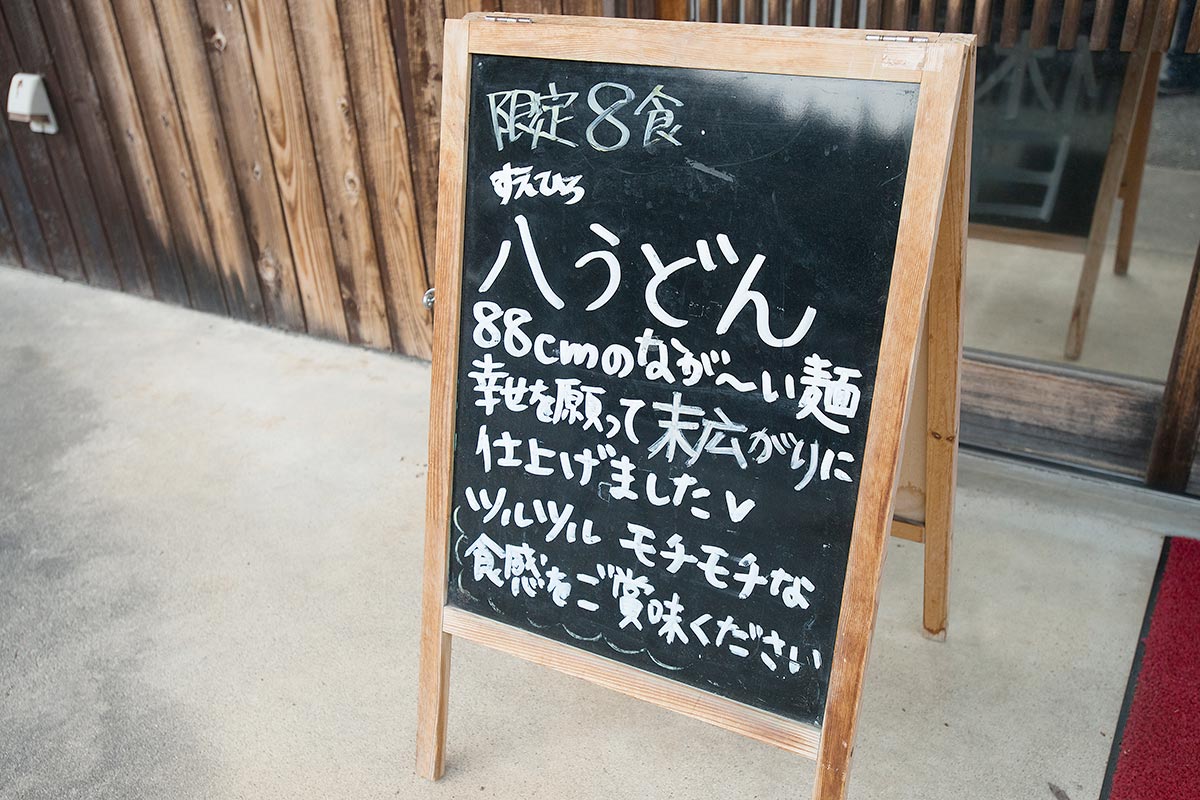 限定8食
すえひろ
八うどん
88cmのなが〜い麺
幸せを願って末広がりに
仕上げました♥
ツルツル モチモチな
食感をご賞味ください